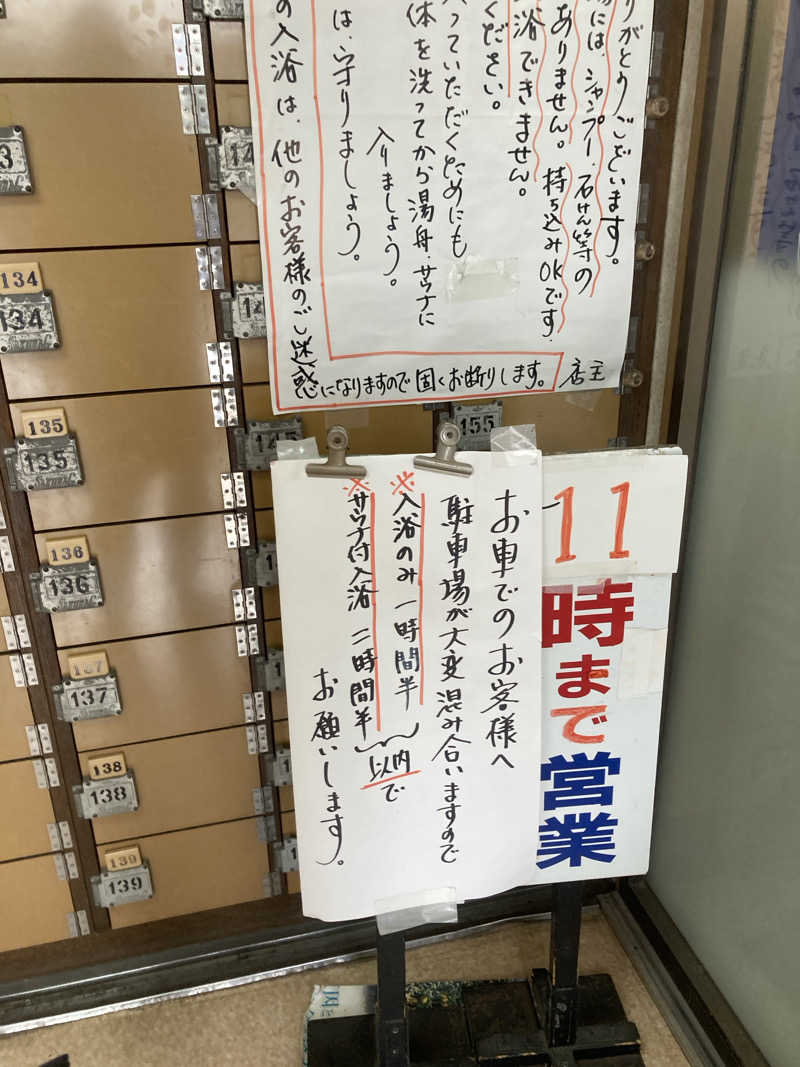 りがとうございます。
場には、シャンプー、石けん等の
ありません。持ち込みOKです。
浴できません。
ください。
っていただくためにも
体を洗ってから湯舟、サウナに
入りましょう。
は、守りましょう。
の入浴は、他のお客様のご迷惑になりますので固くお断りします。
店主
11
時まで営業
お車でのお客様へ
駐車場が大変混み合いますので
※入浴のみ 一時間半
※サウナ付入浴 二時間半
以内で
お願いします。
3
134
134
135
135
136
136
137
137
138
138
139
139
155